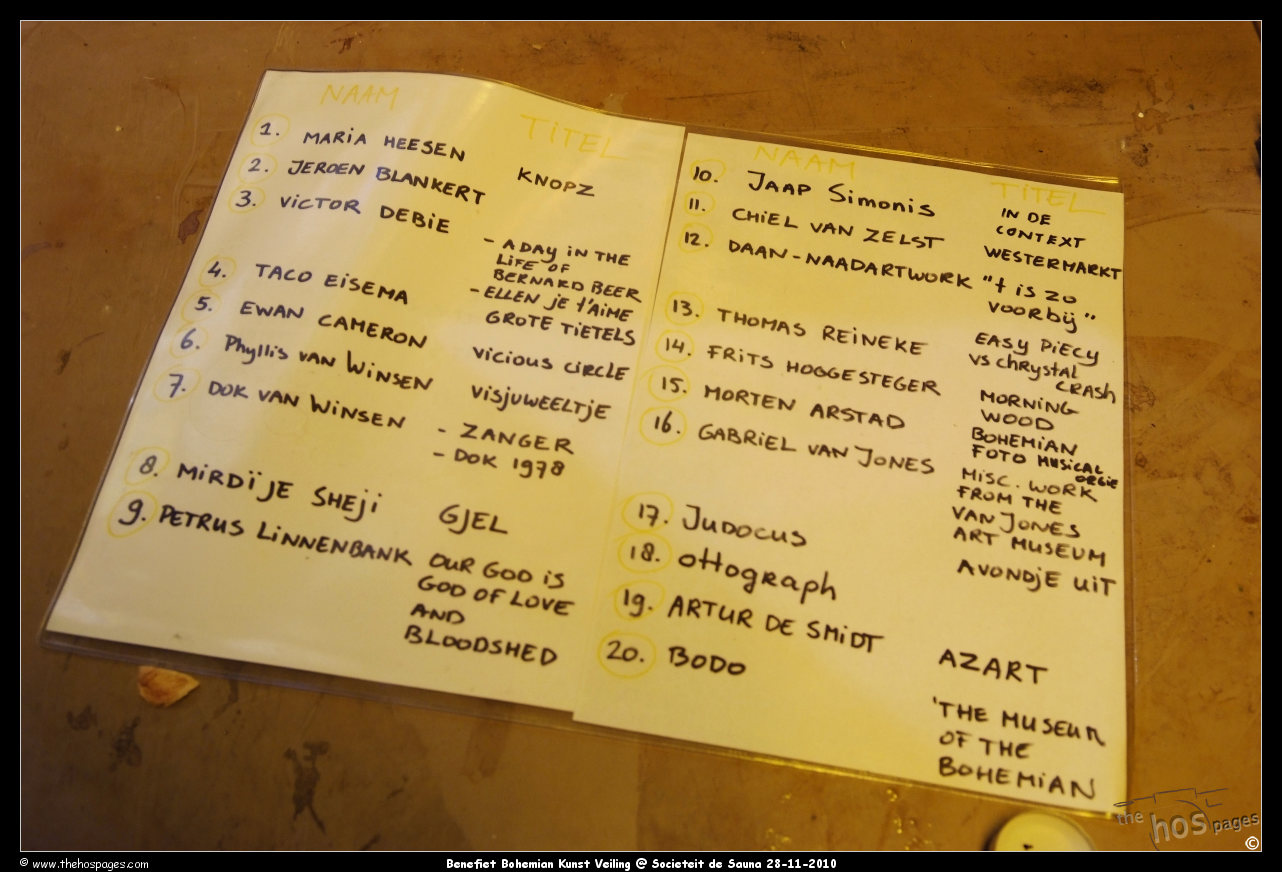 NAAM
TITEL
1. MARIA HEESEN
KNOPZ
2. JEROEN BLANKERT
3. VICTOR DEBIE
- A DAY IN THE
LIFE OF
BERNARD BEER
- ELLEN JE T'AIME
4. TACO EISEMA
GROTE TIETELS
5. EWAN CAMERON
VICIOUS CIRCLE
6. Phyllis VAN WINSEN
VISJUWEELTJE
7. DOK VAN WINSEN
- ZANGER
- DOK 1978
8. MIRDÏJE SHEJI
GJEL
9. PETRUS LINNENBANK
OUR GOD IS
GOD OF LOVE
AND
BLOODSHED
NAAM
TITEL
10. JAAP SIMONIS
IN DE
CONTEXT
11. CHIEL VAN ZELST
WESTERMARKT
12. DAAN-NAADARTWORK
"t is zo
voorbij"
13. THOMAS REINEKE
EASY PIECY
VS CHRYSTAL
CRASH
14. FRITS HOGGESTEGER
MORNING
WOOD
15. MORTEN ARSTAD
BOHEMIAN
FOTO MUSICAL
ORGIE
16. GABRIEL VAN JONES
MISC. WORK
FROM THE
VAN JONES
ART MUSEUM
17. JUDOCUS
AVONDJE UIT
18. ottograph
19. ARTUR DE SMIDT
AZART
20. BODO
'THE MUSEUM
OF THE
BOHEMIAN
the hos pages
©
© www.thehospages.com
Benefiet Bohemian Kunst Veiling @ Societeit de Sauna 28-11-2010